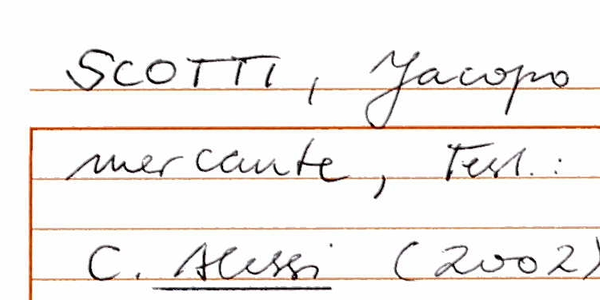 SCOTTI, Jacopo
mercante, Test.:
C. Alessi (2002)